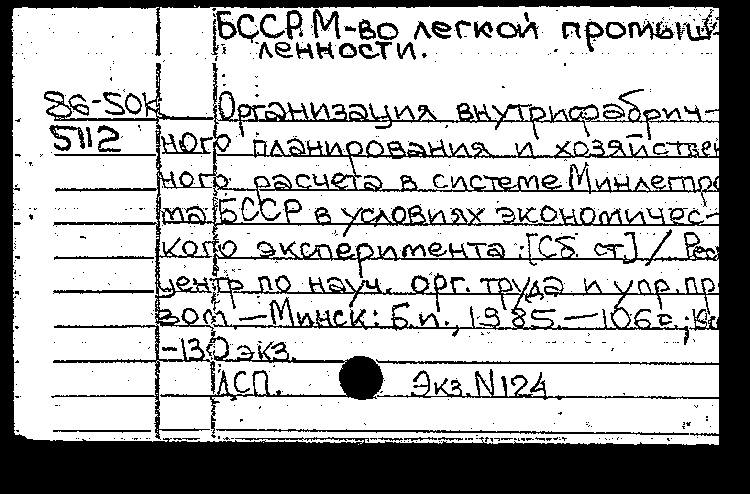 БССР. М-во легкой промыш-
ленности.
86-50к Организация внутрифабрич-
5112 ного планирования и хозяйствен
ного расчета в системе Минлегпро
ма БССР в условиях экономичес-
кого эксперимента: [Сб. ст] / Рес
центр по науч. орг. труда и упр. пр
вом. — Минск: Б. и., 1985. — 106 с.;
-130 экз.
ДСП. Экз. N 124